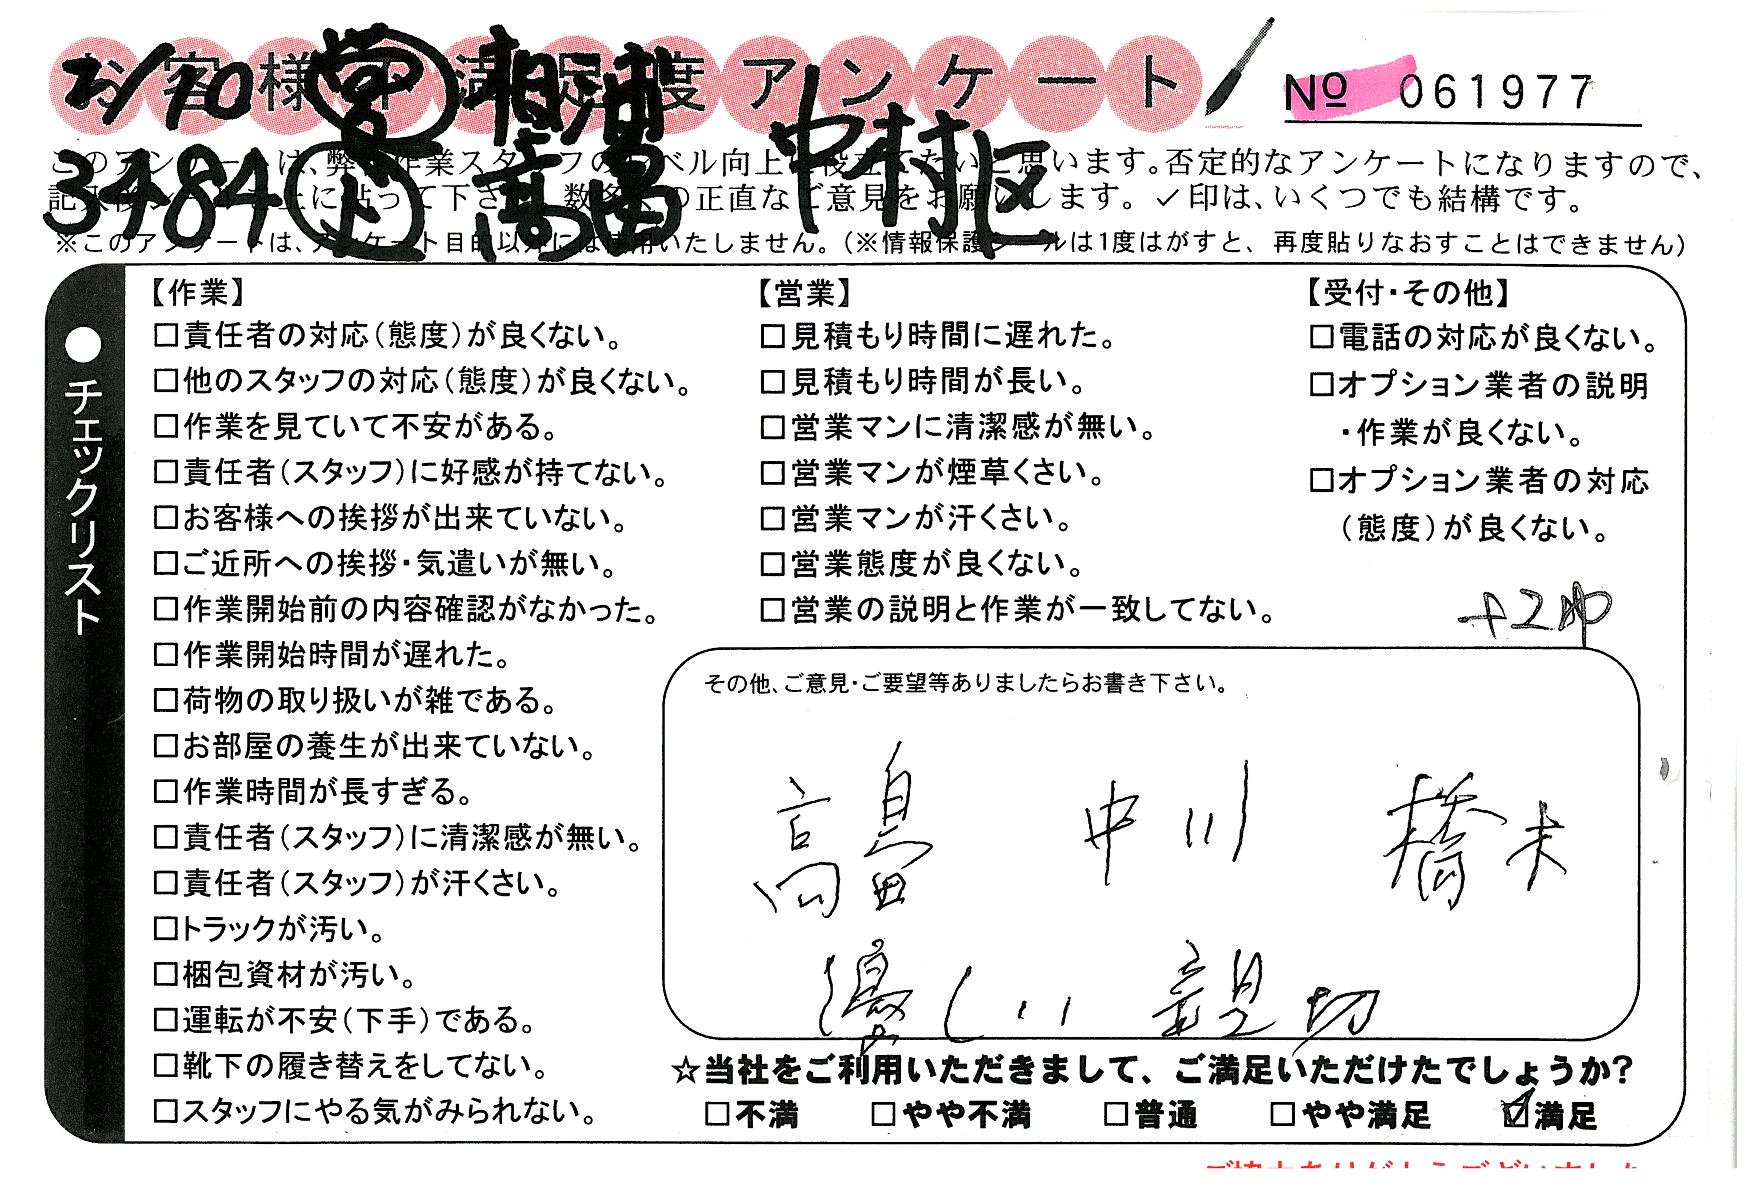 お客様不満足度アンケート
No 061977
2/10 営 相浦
3484 下 高畠 中村区
このアンケートは、弊社作業スタッフのレベル向上に役立てたいと思います。否定的なアンケートになりますので、
記入後シールを上に貼って下さい。数多くの正直なご意見をお願いします。✓印は、いくつでも結構です。
※このアンケートは、アンケート目的以外には使用いたしません。（※情報保護シールは1度はがすと、再度貼りなおすことはできません）
●チェックリスト
【作業】
□責任者の対応（態度）が良くない。
□他のスタッフの対応（態度）が良くない。
□作業を見ていて不安がある。
□責任者（スタッフ）に好感が持てない。
□お客様への挨拶が出来ていない。
□ご近所への挨拶・気遣いが無い。
□作業開始前の内容確認がなかった。
□作業開始時間が遅れた。
□荷物の取り扱いが雑である。
□お部屋の養生が出来ていない。
□作業時間が長すぎる。
□責任者（スタッフ）に清潔感が無い。
□責任者（スタッフ）が汗くさい。
□トラックが汚い。
□梱包資材が汚い。
□運転が不安（下手）である。
□靴下の履き替えをしてない。
□スタッフにやる気がみられない。
【営業】
□見積もり時間に遅れた。
□見積もり時間が長い。
□営業マンに清潔感が無い。
□営業マンが煙草くさい。
□営業マンが汗くさい。
□営業態度が良くない。
□営業の説明と作業が一致してない。
【受付・その他】
□電話の対応が良くない。
□オプション業者の説明
・作業が良くない。
□オプション業者の対応
（態度）が良くない。
その他、ご意見・ご要望等ありましたらお書き下さい。
高畠 中川 橋本
優しい 親切
☆当社をご利用いただきまして、ご満足いただけたでしょうか？
□不満 □やや不満 □普通 □やや満足 ☑満足
ご協力ありがとうございました